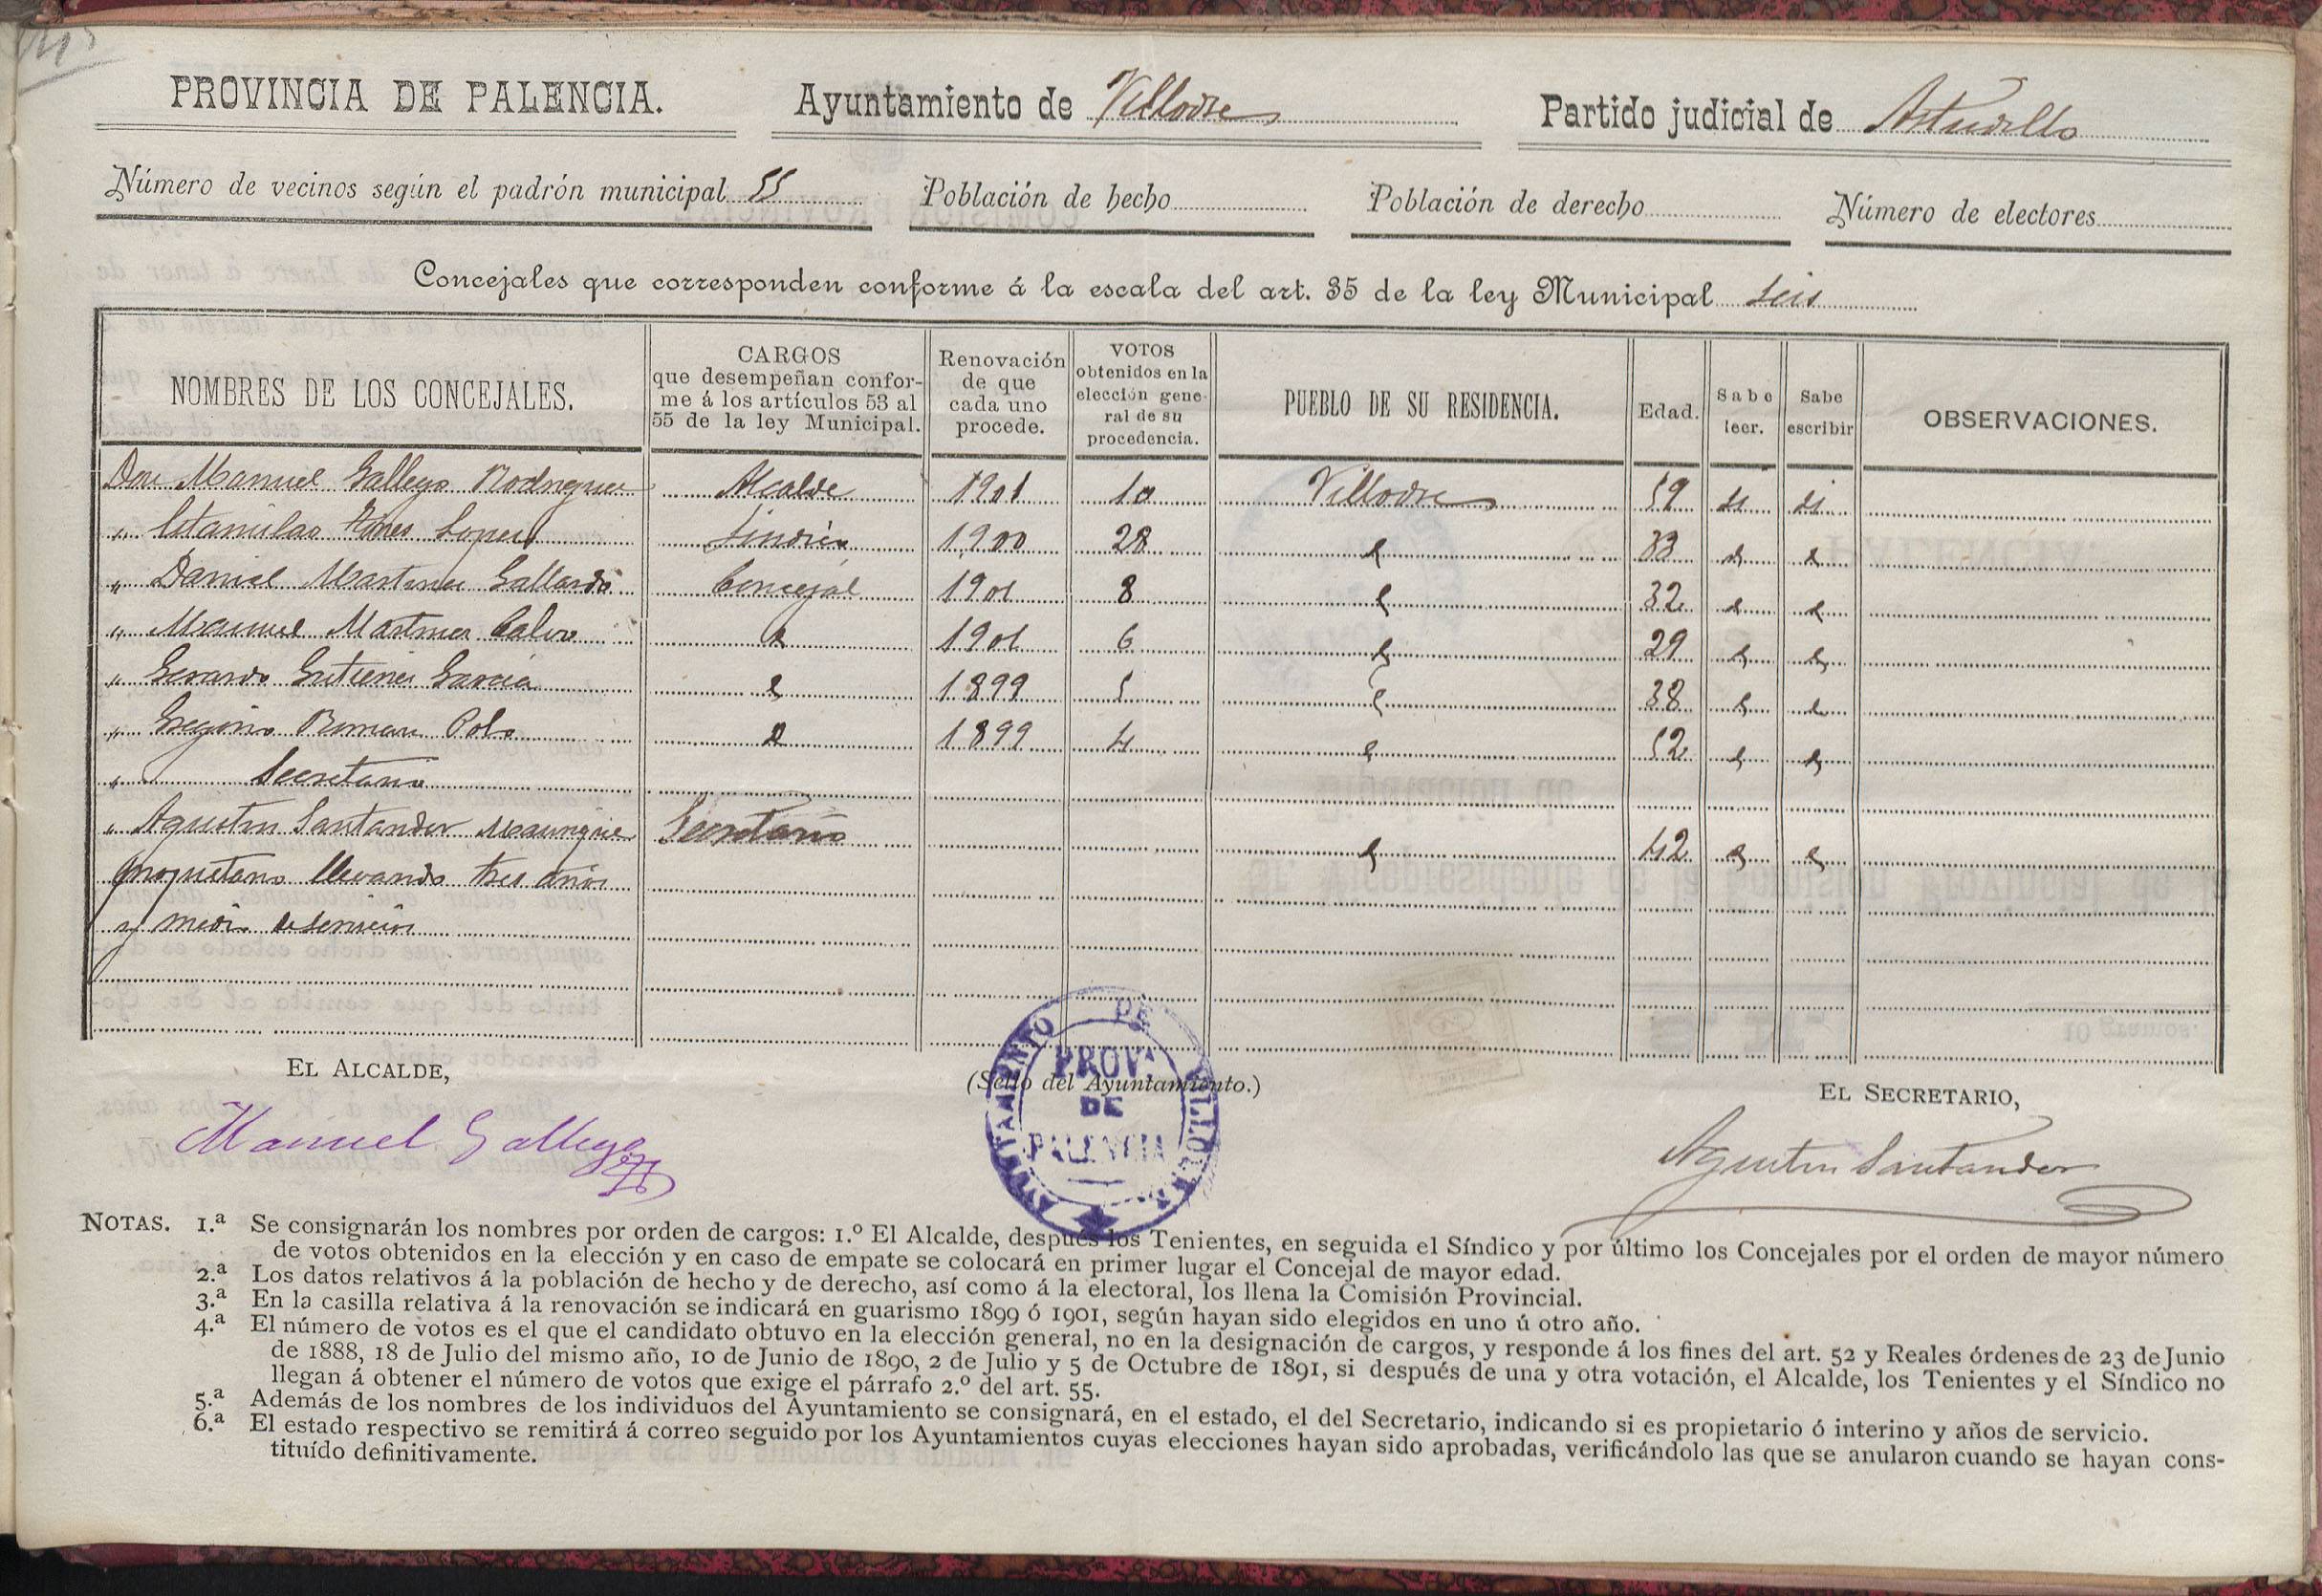 PROVINCIA DE PALENCIA. Ayuntamiento de Villodre Partido judicial de Astudillo
Número de vecinos según el padrón municipal 55 Población de hecho Población de derecho Número de electores
Concejales que corresponden conforme á la escala del art. 35 de la ley Municipal seis
NOMBRES DE LOS CONCEJALES.
CARGOS
que desempeñan confor-
me á los artículos 53 al
55 de la ley Municipal.
Renovación
de que
cada uno
procede.
VOTOS
obtenidos en la
elección gene-
ral de su
procedencia.
PUEBLO DE SU RESIDENCIA.
Edad.
Sabe
leer.
Sabe
escribir
OBSERVACIONES.
Don Manuel Gallego Rodriguez Alcalde 1901 10 Villodre 59 si si
" Estanislao Lopez Sindico 1900 28 " 33 " "
" Daniel Martinez Gallardo Concejal 1901 8 " 32 " "
" Manuel Martinez Calvo " 1901 6 " 29 " "
" Gerardo Gutierrez Garcia " 1899 5 " 38 " "
" Gregorio Roman Polo " 1899 4 " 52 " "
" Secretario
" Agustin Santander Manrique Secretario " 42 " "
propietario llevando tres años
y medio de servicio
EL ALCALDE,
(Sello del Ayuntamiento.)
EL SECRETARIO,
AYUNTAMIENTO DE VILLODRE
PROV.A
DE
PALENCIA
Manuel Gallego
Agustin Santander
NOTAS. 1.ª Se consignarán los nombres por orden de cargos: 1.º El Alcalde, después los Tenientes, en seguida el Síndico y por último los Concejales por el orden de mayor número
de votos obtenidos en la elección y en caso de empate se colocará en primer lugar el Concejal de mayor edad.
2.ª Los datos relativos á la población de hecho y de derecho, así como á la electoral, los llena la Comisión Provincial.
3.ª En la casilla relativa á la renovación se indicará en guarismo 1899 ó 1901, según hayan sido elegidos en uno ú otro año.
4.ª El número de votos es el que el candidato obtuvo en la elección general, no en la designación de cargos, y responde á los fines del art. 52 y Reales órdenes de 23 de Junio
de 1888, 18 de Julio del mismo año, 10 de Junio de 1890, 2 de Julio y 5 de Octubre de 1891, si después de una y otra votación, el Alcalde, los Tenientes y el Síndico no
llegan á obtener el número de votos que exige el párrafo 2.º del art. 55.
5.ª Además de los nombres de los individuos del Ayuntamiento se consignará, en el estado, el del Secretario, indicando si es propietario ó interino y años de servicio.
6.ª El estado respectivo se remitirá á correo seguido por los Ayuntamientos cuyas elecciones hayan sido aprobadas, verificándolo las que se anularon cuando se hayan cons-
tituído definitivamente.